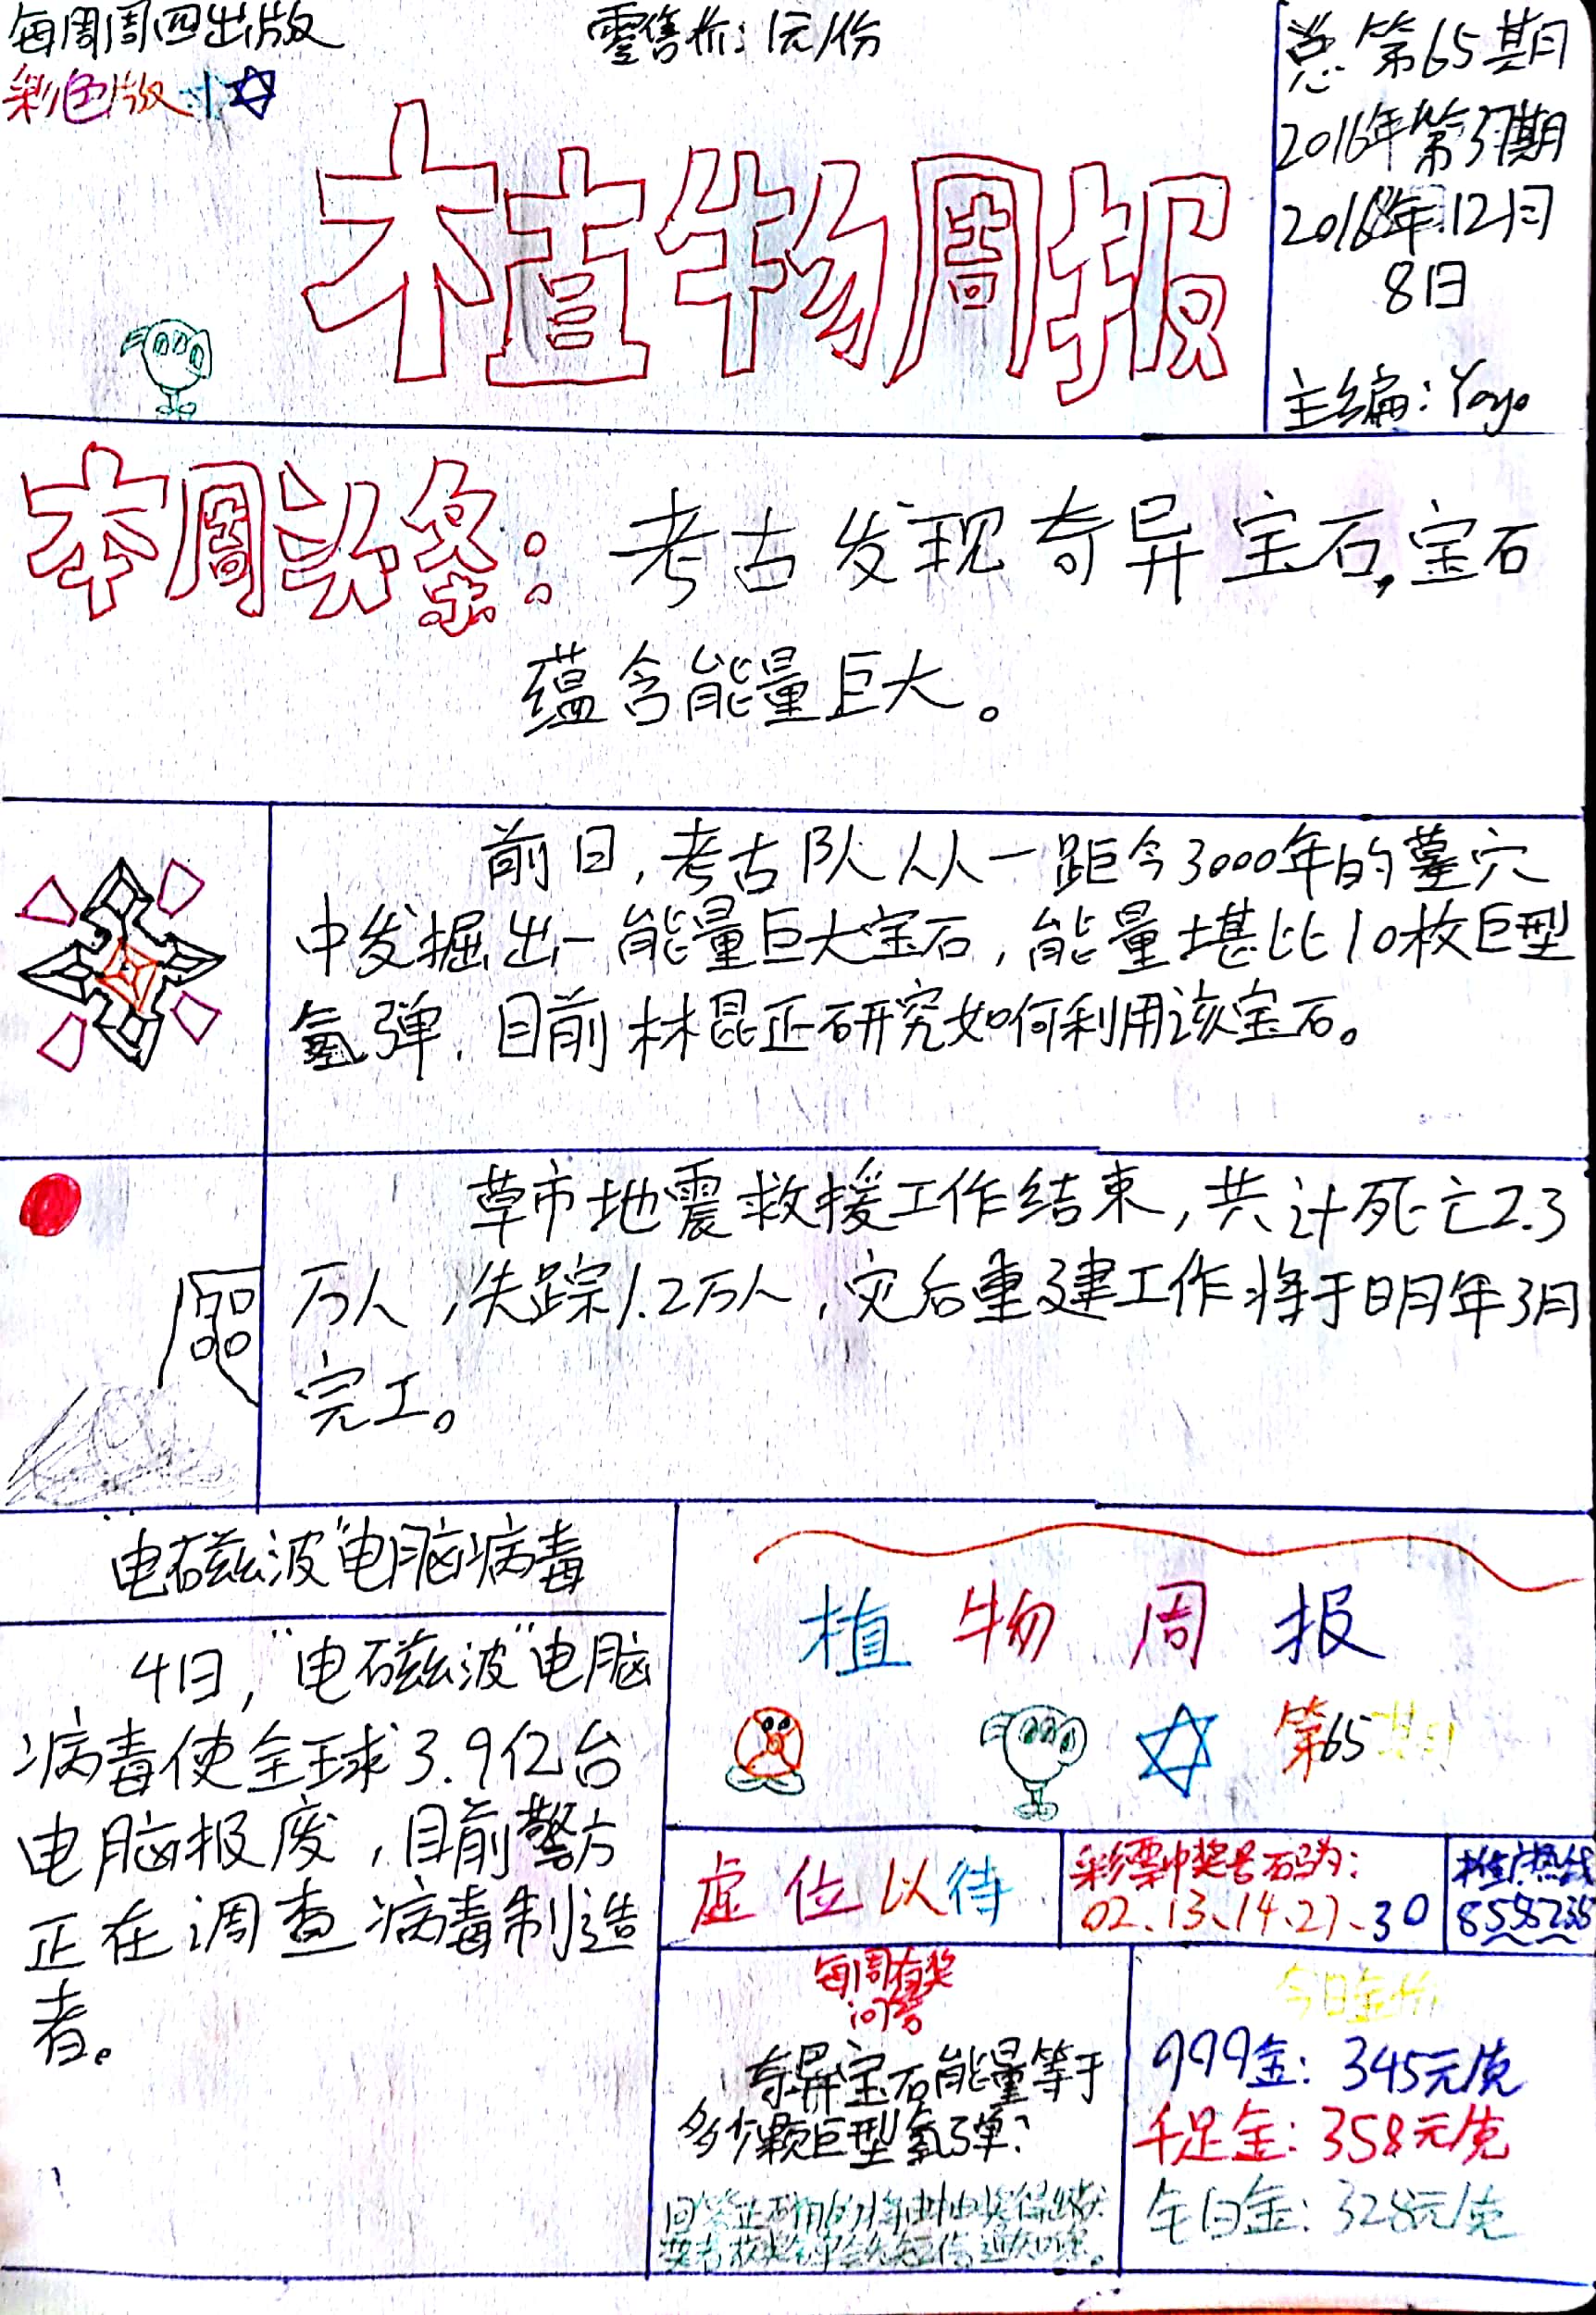 每周周四出版
零售价：1元/份
彩色版
总第65期
2016年第37期
2016年12月
8日
主编：Yoyo
植物周报
本周头条：考古发现奇异宝石，宝石
蕴含能量巨大。
前日，考古队从一距今3000年的墓穴
中发掘出一能量巨大宝石，能量堪比10枚巨型
氢弹．目前林昆正研究如何利用该宝石。
草市地震救援工作结束，共计死亡2.3
万人，失踪1.2万人，灾后重建工作将于明年3月
完工。
“电磁波”电脑病毒
4日，“电磁波”电脑
病毒使全球3.9亿台
电脑报废，目前警方
正在调查病毒制造
者。
植物周报
第65期
虚位以待
彩票中奖号码为：
02、13、14、27、30
推广热线
每周有奖
问答
奇异宝石能量等于
多少颗巨型氢弹？
回答正确的将抽出奖得出获
今日金价
999金：345元/克
千足金：358元/克
白金：328元/克